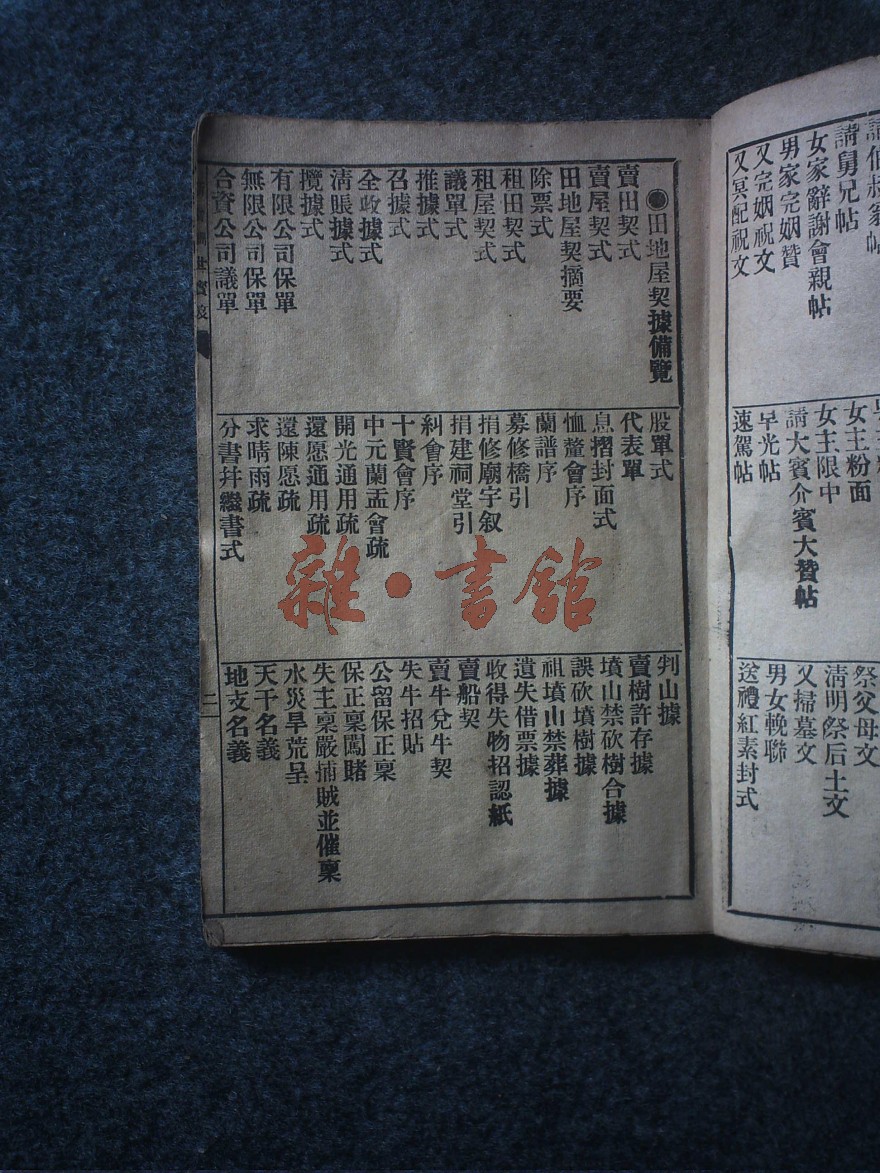 請舅兄帖
女家辭謝會親帖
男家完姻贊
又完姻祝文
又冥配祝文
女主粉面
女主限中
請大賓介賓大贊帖
早光帖
速駕帖
祭父母文
清明祭后土文
又掃墓文
男女輓聯
送禮紅素封式
●田地屋契據備覽
賣田契式
賣屋契式
田地屋契摘要
除票式
租田契式
租屋契式
議單式
推據式
召據式
全收據式
清賬據式
攬據式
有限公司保單
無限公司保單
合資公司議單
股單式
代表單
息摺封面式
恤釐會序
蘭譜序
募修橋引
捐修廟宇叙
捐建祠堂引
糾會序
十賢會序
中元蘭盂會疏
開光通用疏
還愿通用疏
還陳愿疏
求晴雨疏
分書并繼書式
判山據
賣樹許存據
墳山禁砍樹合據
誤砍墳樹據
祖墳山禁葬據
遺失借票據
收得失物招認紙
賣船契
賣牛兌牛契
失牛招貼
公留保正稟
保正稟闖賭
失主稟嚴捕賊並催稟
水災旱荒呈
天干名義
地支名義
二
雜·書館